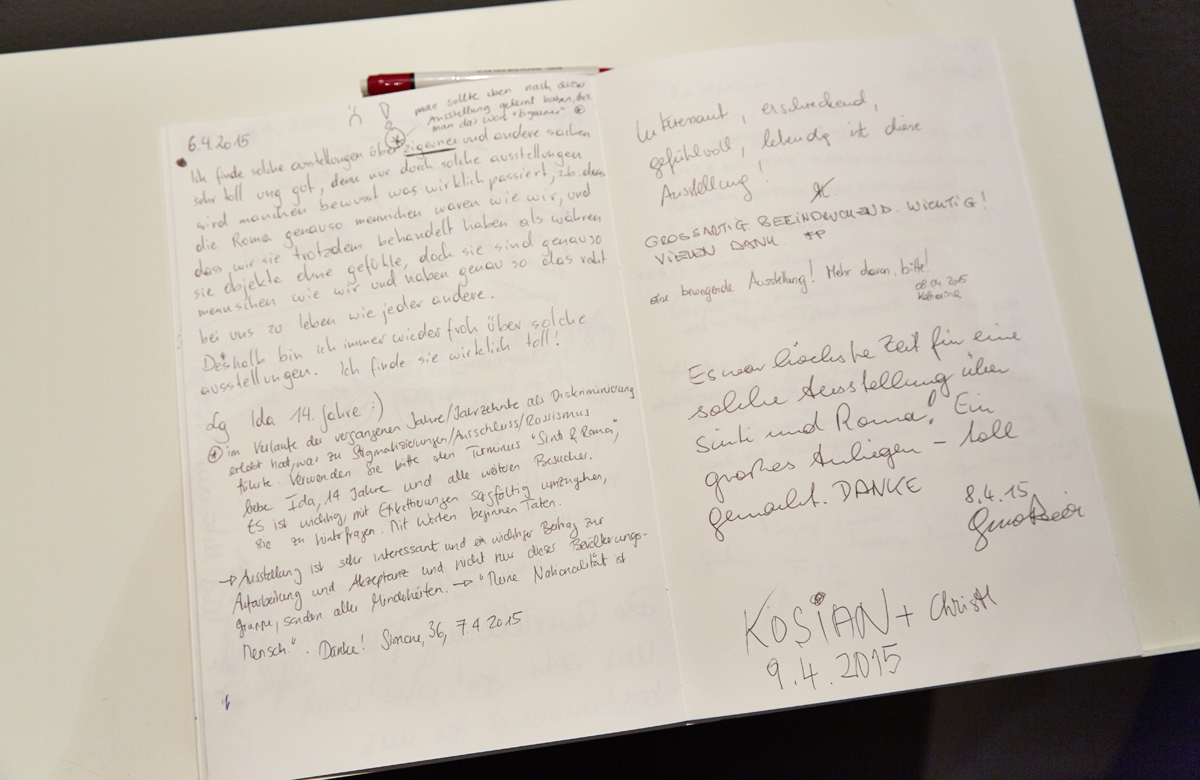 6.4.2015
man sollte eben nach dieser
Ausstellung gelernt haben, dass
man das Wort "Zigeuner"
Ich finde solche ausstellungen über zigeuner und andere sachen
sehr toll ung gut, denn nur durch solche ausstellungen
wird manchen bewusst was wirklich passiert, zb. dass
die Roma genauso mennichen waren wie wir, und
dass wir sie trotzdem behandelt haben als währen
sie objekte ohne gefühle, doch sie sind genauso
mennschen wie wir und haben genau so das
bei uns zu leben wie jeder andere.
Deshalb bin ich immer wieder froh über solche
ausstellungen. Ich finde sie wirklich toll!
Lg Ida 14. Jahre :)
* im Verlaufe der vergangenen Jahre/Jahrzehnte als Diskriminierung
erlebt hat, was zu Stigmatisierungen/Ausschluss/Rassismus
führte. Verwenden Sie bitte den Terminus "Sinti & Roma",
liebe Ida, 14 Jahre und alle weiteren Besucher.
ES ist wichtig, mit Etikettierungen sorgfältig umzugehen,
sie zu hinterfragen. Mit Worten beginnen Taten.
→ Ausstellung ist sehr interessant und ein wichtiger Beitrag zur
Aufarbeitung und Akzeptanz und nicht nur dieser Bevölkerungs-
gruppe, sondern aller Minderheiten. → "Meine Nationalität ist
Mensch." . Danke! Simone, 36, 7.4.2015
Interessant, erschreckend,
gefühlvoll, lebendig ist diese
Ausstellung!
GROSSARTIG. BEEINDRUCKEND. WICHTIG!
VIELEN DANK.
eine bewegende Ausstellung! Mehr davon, bitte!
08.04.2015
Katharina
Es war höchste Zeit für eine
solche Ausstellung über
Sinti und Roma! Ein
großes Anliegen – toll
gemacht. DANKE
8.4.15
KOSIAN + Christl
9.4.2015